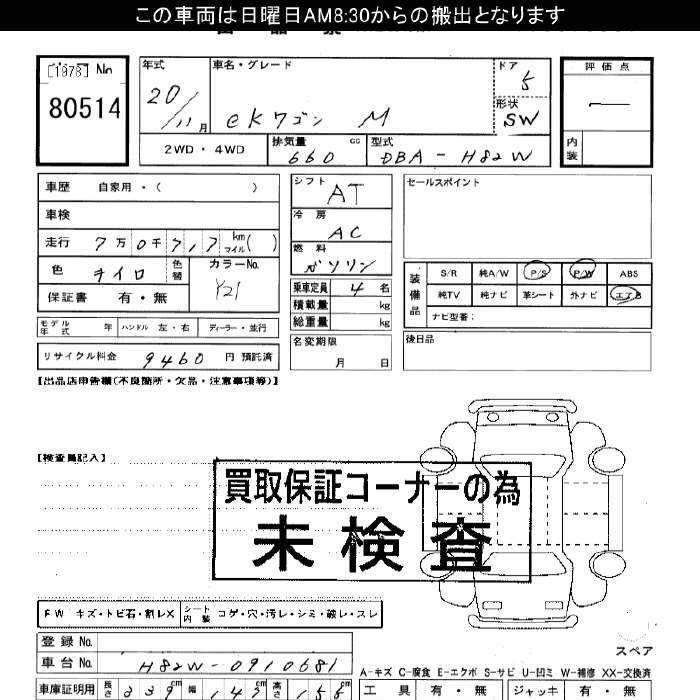 この車両は日曜日AM8:30からの搬出となります
[1978] No
80514
年式 車名・グレード ドア 5
20/11月 eKワゴン M 形状 SW
2WD・4WD 排気量 660 cc 型式 DBA-H82W
評価点
内装
車歴 自家用・( )
車検
走行 7万0千7,1,7 km マイル( )
色 キイロ 色替 カラーNo. Y21
保証書 有・無
シフト AT
冷房 AC
燃料 ガソリン
乗車定員 4 名
積載量 kg
総重量 kg
セールスポイント
装備品 S/R 純A/W P/S P/W ABS
純TV 純ナビ 革シート 外ナビ エアB
ナビ型番:
モデル年式 年 ハンドル 左・右 ディーラー・並行
リサイクル料金 9460 円 預託済
名変期限 月 日
後日品
【出品店申告欄(不良箇所・欠品・注意事項等)】
【検査員記入】
買取保証コーナーの為
未検査
FW キズ・トビ石・割レX シート内装 コゲ・穴・汚レ・シミ・破レ・スレ
登録 No.
車台 No. H82W-0910681
スペア
A-キズ C-腐食 E-エクボ S-サビ U-凹ミ W-補修 XX-交換済
車庫証明用 長さ 339 cm 幅 147 cm 高さ 155 cm
工具 有・無 ジャッキ 有・無